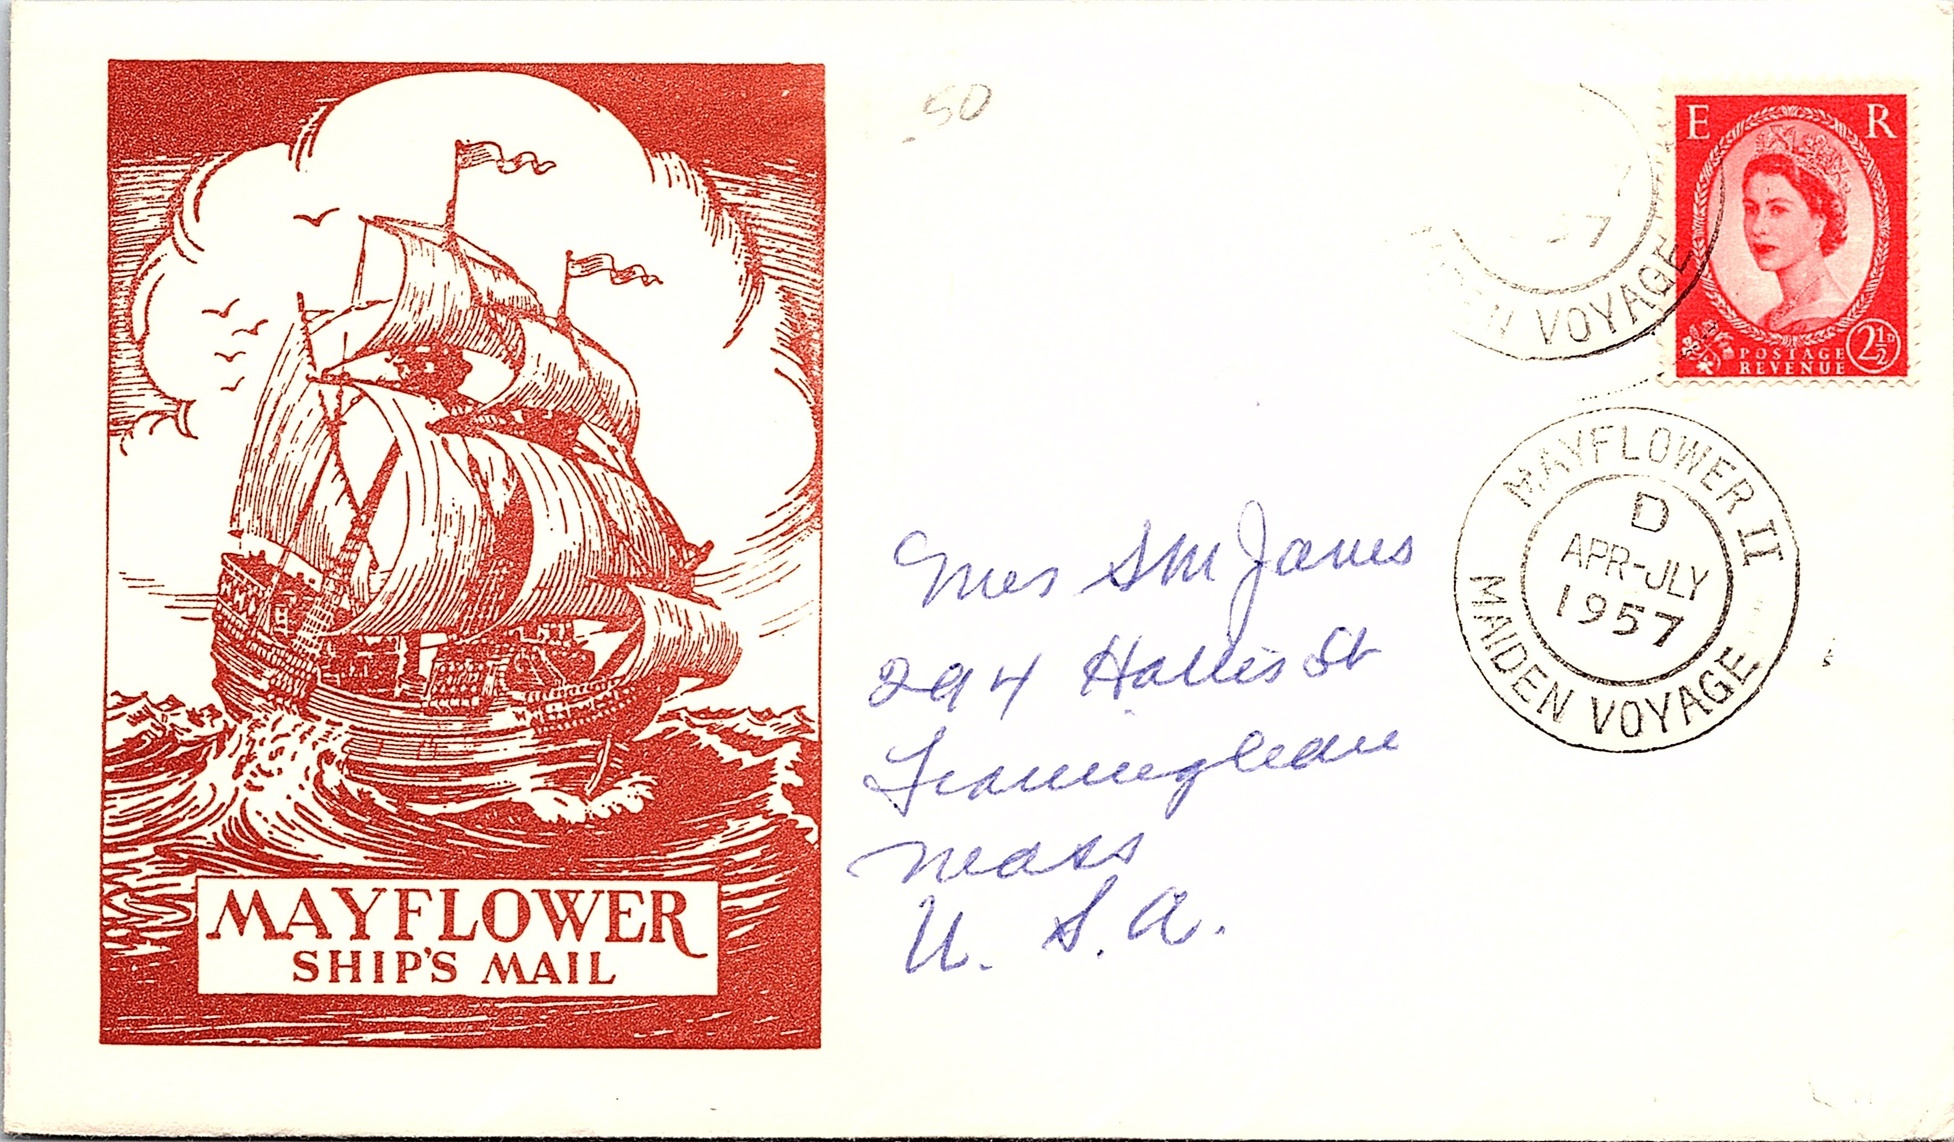 MAYFLOWER
SHIP'S MAIL
.50
E R
POSTAGE
REVENUE
2½D
EN VOYAGE
MAYFLOWER II
D
APR-JLY
1957
MAIDEN VOYAGE
Mrs S M Janes
294 Hollis St
Framingham
Mass
U. S. A.